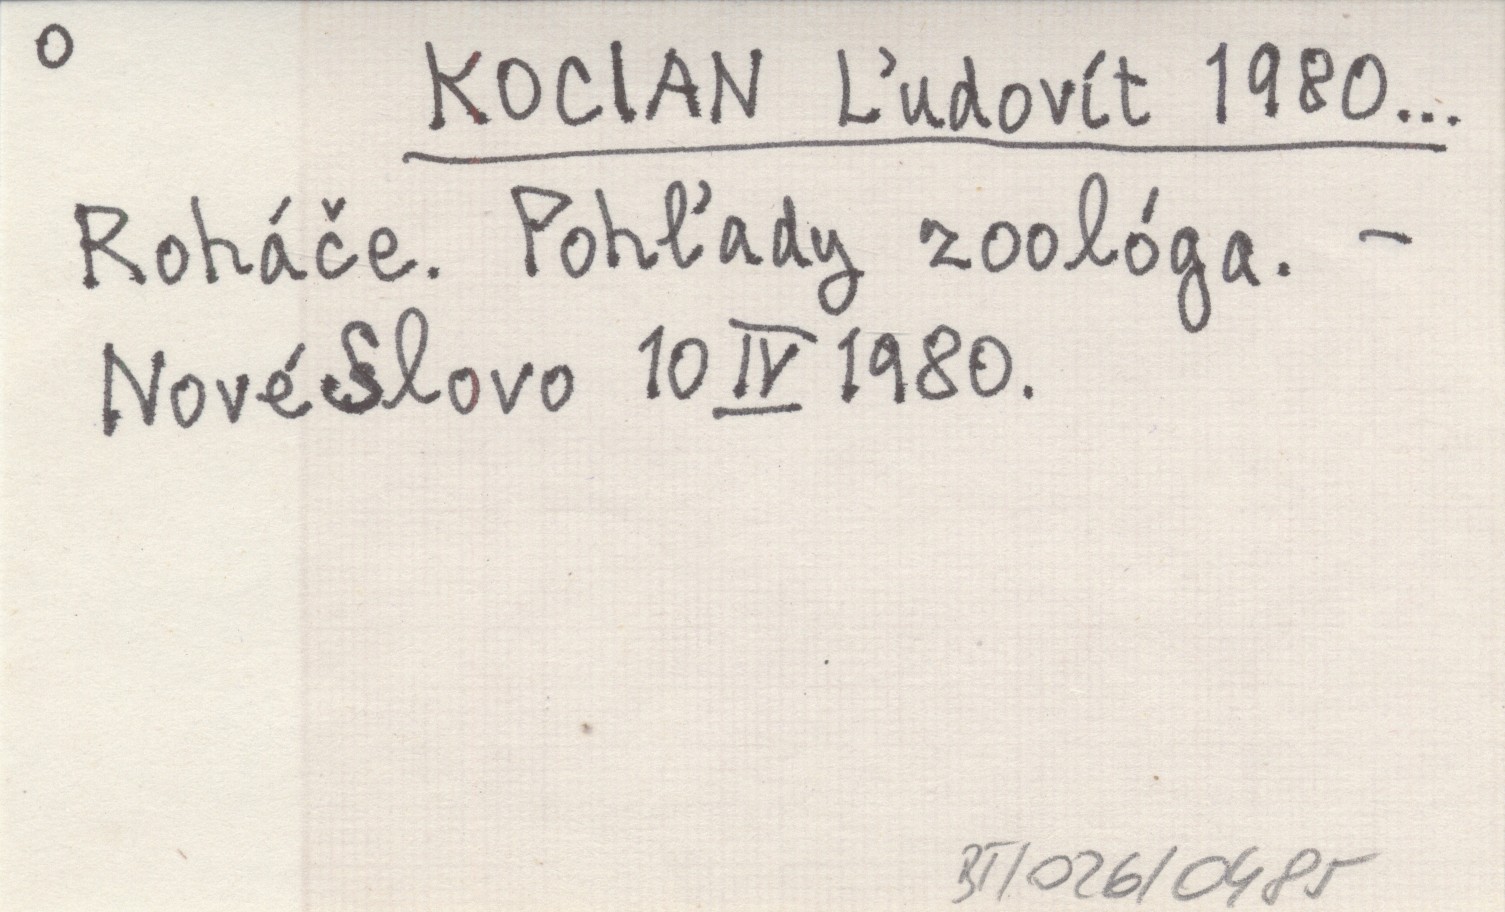 O
KOCIAN Ľudovít 1980...
Roháče. Pohľady zoológa. –
Nové Slovo 10 IV 1980.
BT/026/0485